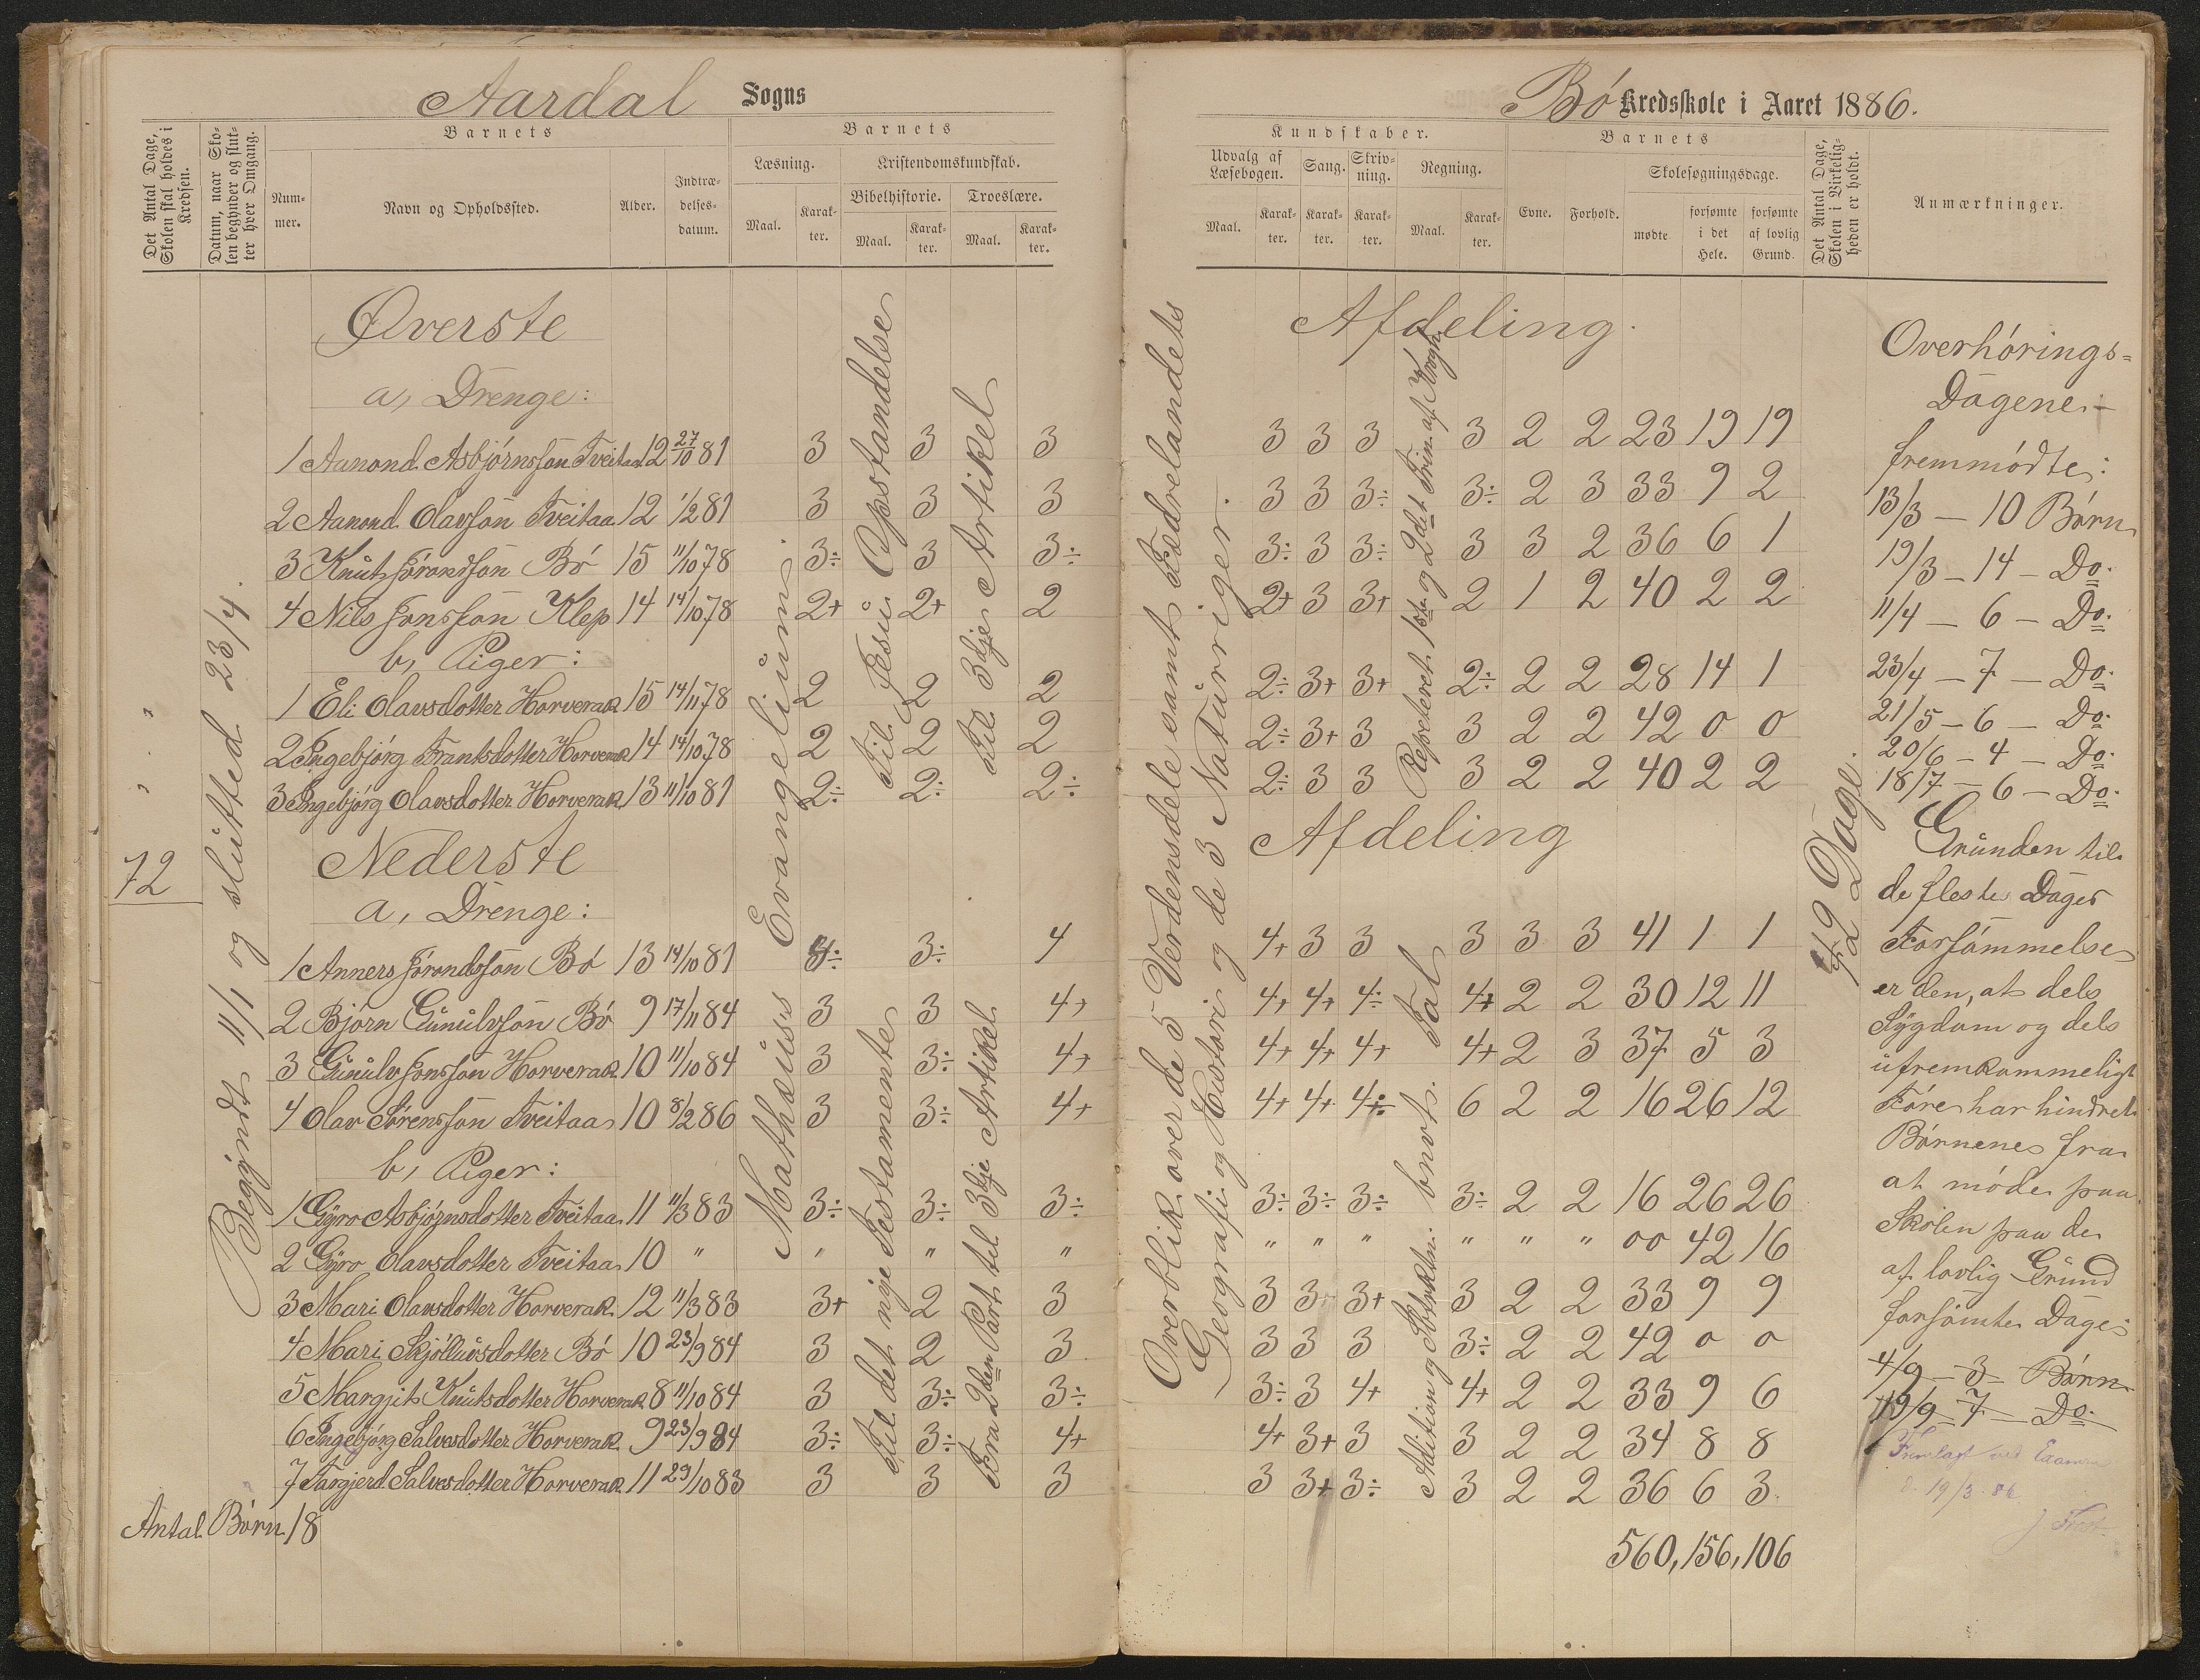 Aardal Sogns
Det Antal Dage, Skolen skal holdes i Kredsen.
Datum, naar Skolen begynder og slutter hver Omgang.
Barnets
Nummer.
Navn og Opholdssted.
Alder.
Indtrædelsesdatum.
Barnets
Læsning.
Kristendomskundskab.
Bibelhistorie.
Troeslære.
Maal. Karakter. Maal. Karakter. Maal. Karakter.
72
Begyndt 11/1 og slutted 23/4.
Øverste
a, Drenge:
1 Aanond Asbjørnsson Tveitaa 12 27/10 81 3 3 3
2 Aanond Olavson Tveitaa 12 1/2 81 3 3 3
3 Knut Jørondson Bø 15 11/10 78 3÷ 3 3÷
4 Nils Jonsson Klep 14 14/10 78 2+ 2+ 2
b, Piger:
1 Eli Olavsdotter Horverak 15 14/11 78 2 2 2
2 Ingebjørg Frantsdotter Horverak 14 14/10 78 2 2 2
3 Ingebjørg Olavsdotter Horverak 13 11/10 81 2÷ 2÷ 2÷
Nederste
a, Drenge:
1 Anners Jørondsson Bø 13 14/10 81 4÷ 3÷ 4
2 Bjørn Gunulvson Bø 9 17/11 84 3 3 4+
3 Gunulv Jonsson Horverak 10 11/10 84 3 3÷ 4+
4 Olav Sørensson Tveitaa 10 8/2 86 3 3÷ 4+
b, Piger:
1 Gyro Asbjørnsdotter Tveitaa 11 11/3 83 3÷ 3÷ 3÷
2 Gyro Olavsdotter Tveitaa 10 " " " "
3 Mari Olavsdotter Horverak 12 11/3 83 3+ 2 3
4 Mari Skjølluvsdotter Bø 10 23/9 84 3 2 3
5 Margjit Knutsdotter Horverak 8 11/10 84 3 3÷ 3÷
6 Ingebjørg Salvesdotter Horverak 9 23/9 84 3÷ 3÷ 4+
7 Targjerd Salvesdotter Horverak 11 29/10 83 3 3 3
Antal Børn 18
Mathæus Evangelium.
Til Jesu Opstandelse
Til 3dje Artikel
Til det nye Testamente
Fra 2den Part til 3dje Artikel
Bø Kredsskole i Aaret 1886.
Kundskaber.
Udvalg af Læsebogen.
Sang.
Skrivning.
Regning.
Maal. Karakter. Karakter. Karakter. Maal. Karakter.
Barnets
Evne.
Forhold.
Skolesøgningsdage.
mødte
forsømte i det Hele.
forsømte af lovlig Grund.
Det Antal Dage, Skolen i Virkeligheden er holdt.
Anmærkninger.
Overblik over de 5 Verdensdele samt Fædrelandets
Geografi og Historie og de 3 Naturriger.
Afdeling.
3 3 3 3 2 2 23 19 19
3 3 3÷ 3÷ 2 3 33 9 2
3÷ 3 3÷ 3 3 2 36 6 1
2+ 3 3+ 2 1 2 40 2 2
2÷ 3+ 3+ 2÷ 2 2 28 14 1
2÷ 3+ 3 3 2 2 42 0 0
2÷ 3 3 3 2 2 40 2 2
Afdeling
4+ 3 3 3 3 3 41 1 1
4+ 4+ 4÷ 4+ 2 2 30 12 11
4+ 4+ 4+ 4+ 2 3 37 5 3
4+ 4+ 4÷ 6 2 2 16 26 12
3÷ 3÷ 3÷ 3÷ 2 2 16 26 26
" " " " " " 00 42 16
3 3 3+ 3 2 2 33 9 9
3 3 3 3÷ 2 2 42 0 0
3÷ 3 4+ 4+ 2 2 33 9 6
4+ 3+ 3 3 2 2 34 8 8
3 3+ 3÷ 3 2 2 36 6 3
560, 156, 106
Repeteret 1ste og 2det Trin af
Adition og Sbtraktin. bnvt. Tal
42 Dage.
Overhørings-
Dagene
fremmødte:
13/3 — 10 Børn
19/3 — 14 — Do.
11/4 — 6 — Do.
23/4 — 7 — Do.
21/5 — 6 — Do.
20/6 — 4 — Do.
18/7 — 6 — Do.
Grunden til
de fleste Dages
Forsømmelse
er den, at dels
Sygdom og dels
ufremkommeligt
Føre har hindret
Børnene fra
at møde paa
Skolen paa de
af lovlig Grund
forsømte Dage
4/9 — 3 — Børn
19/9 — 7 — Do.
Fremlagt ved
d. 19/3 86